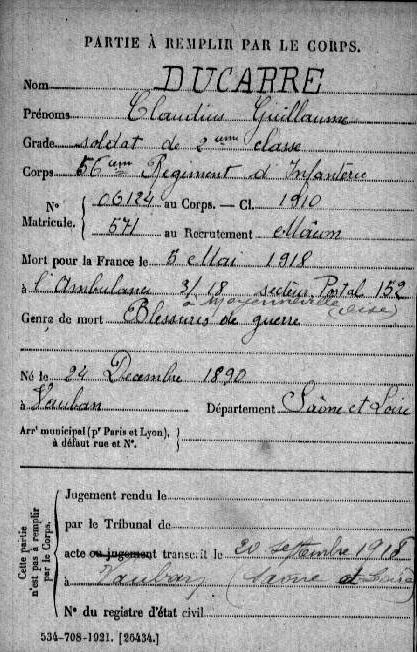 PARTIE À REMPLIR PAR LE CORPS.
Nom DUCARRE
Prénoms Claudius Guillaume
Grade soldat de 2eme classe
Corps 56eme Régiment d'Infanterie
N° Matricule. { 06124 au Corps. — Cl. 1910
571 au Recrutement Mâcon
Mort pour la France le 5 Mai 1918
à l'Ambulance 3/18 secteur Postal 152
à Moyenneville (Oise)
Genre de mort Blessures de guerre
Né le 24 Décembre 1890
à Vauban Département Saône et Loire
Arrt municipal (pr Paris et Lyon), à défaut rue et N°. }
Cette partie n'est pas à remplir par le Corps. {
Jugement rendu le
par le Tribunal de
acte ou jugement transcrit le 20 septembre 1918
à Vauban (Saône et Loire)
N° du registre d'état civil
534-708-1921. [26434.]